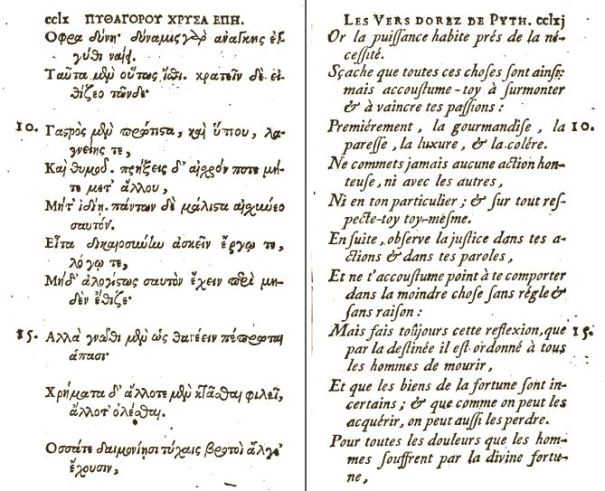 cclx ΠΥΘΑΓΟΡΟΥ ΧΡΥΣΑ ΕΠΗ.
Οφρα δύνῃ· δύναμις γὰρ ἀνάγκης ἐγ-
γύθι ναίει.
Ταῦτα μὲν οὕτως ἴσθι. κρατεῖν δὲ εἰ-
θίζεο τῶνδε·
10. Γαστρὸς μὲν πρώτιστα, καὶ ὕπνου, λα-
γνείης τε,
Καὶ θυμοῦ. πρήξεις δ' αἰσχρόν ποτε μή-
τε μετ' ἄλλου,
Μήτ' ἰδίῃ. πάντων δὲ μάλιστα αἰσχύνεο
σαυτόν.
Εἶτα δικαιοσύνην ἀσκεῖν ἔργῳ τε,
λόγῳ τε,
Μηδ' ἀλογίστως σαυτὸν ἔχειν περὶ μη-
δὲν ἔθιζε·
15. Αλλὰ γνῶθι μὲν ὡς θανέειν πέπρωται
ἅπασι·
Χρήματα δ' ἄλλοτε μὲν κτᾶσθαι φιλεῖ,
ἄλλοτ' ὀλέσθαι.
Οσσάτε δαιμονίησι τύχαις βροτοὶ ἄλγε'
ἔχουσιν,
LES VERS DOREZ DE PYTH. cclxj
Or la puiſſance habite prés de la né-
ceſſité.
Sçache que toutes ces choſes ſont ainſi:
mais accouſtume-toy à ſurmonter
& à vaincre tes paſſions :
Premiérement, la gourmandiſe, la 10.
pareſſe, la luxure, & la colére.
Ne commets jamais aucune action hon-
teuſe, ni avec les autres,
Ni en ton particulier ; & ſur tout reſ-
pecte-toy toy-meſme.
En ſuite, obſerve la juſtice dans tes a-
ctions & dans tes paroles,
Et ne t'accouſtume point à te comporter
dans la moindre choſe ſans régle &
ſans raiſon :
Mais fais toûjours cette reflexion, que 15.
par la deſtinée il eſt ordonné à tous
les hommes de mourir,
Et que les biens de la fortune ſont in-
certains ; & que comme on peut les
acquérir, on peut auſſi les perdre.
Pour toutes les douleurs que les hom-
mes ſouffrent par la divine fortu-
ne,